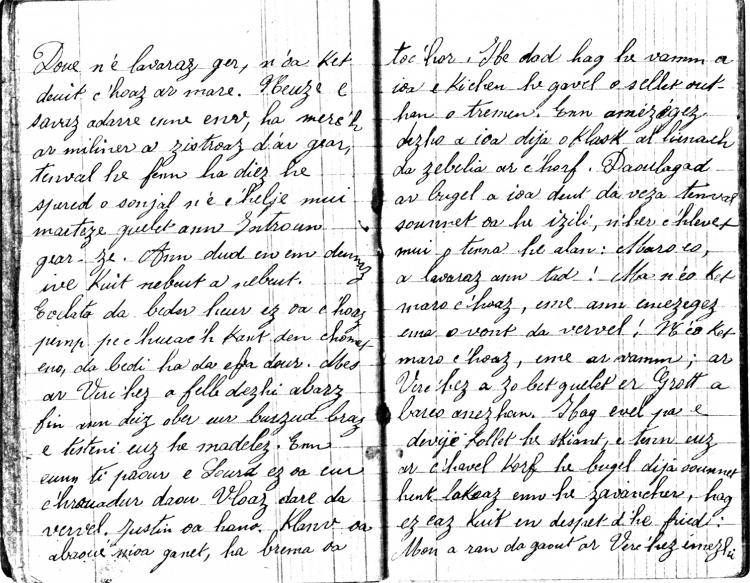 Doue n'é lavaraz ger, n'oa ket
deuit c'hoaz ar mare. Neuze e
savaz adarre enn env, ha merc'h
ar miliner a zistroaz d'ar gear,
tenval he fenn ha diez he
spered o sonjal n'é c'helje mui
marteze guelet ann Introun
gear-ze. Ann dud en em dennaz
ive kuit nebeut a nebeut.
Goclata da beder heur ez oa c'hoaz
pemp pe c'hueac'h kant den chomet
eno, da bedi ha da efa dour. Mes
ar Verc'hez a felle dezhi abarz
fin ann deiz ober eur burzud braz
e testeni euz he madelez. Enn
eunn ti paour e Lourd ez oa eur
c'hrouadur daou vloaz dare da
vervel. Justin oa hano. Klanv oa
abaoue m'oa ganet, ha brema oa
toc'hor. He dad hag he vamm a
ioa e kichen he gavel o sellet out-
han o tremen. Enn amezegez
dezho a ioa dija o klask al lienach
da zebelia ar c'horf. Daoulagad
ar bugel a ioa deut da veza tenval
sounnet oa he izili, n'her c'hlevet
mui o tenna he alan: Maro eo,
a lavaraz ann tad! Ma n'éo ket
maro c'hoaz, eme ann emezegez
ema o vont da vervel! N'éo ket
maro c'hoaz, eme ar vamm; ar
Verc'hez a zo bet guelet er Grott a
bareo anezhan. Hag evel pa e
devije kollet he skiant, e tenn euz
ar c'havel korf he bugel dija sounnet
hent lakaaz enn he zavancher, hag
ez eaz kuit en despet d'he fried:
Mon a ran da gaout ar Verc'hez emezhi